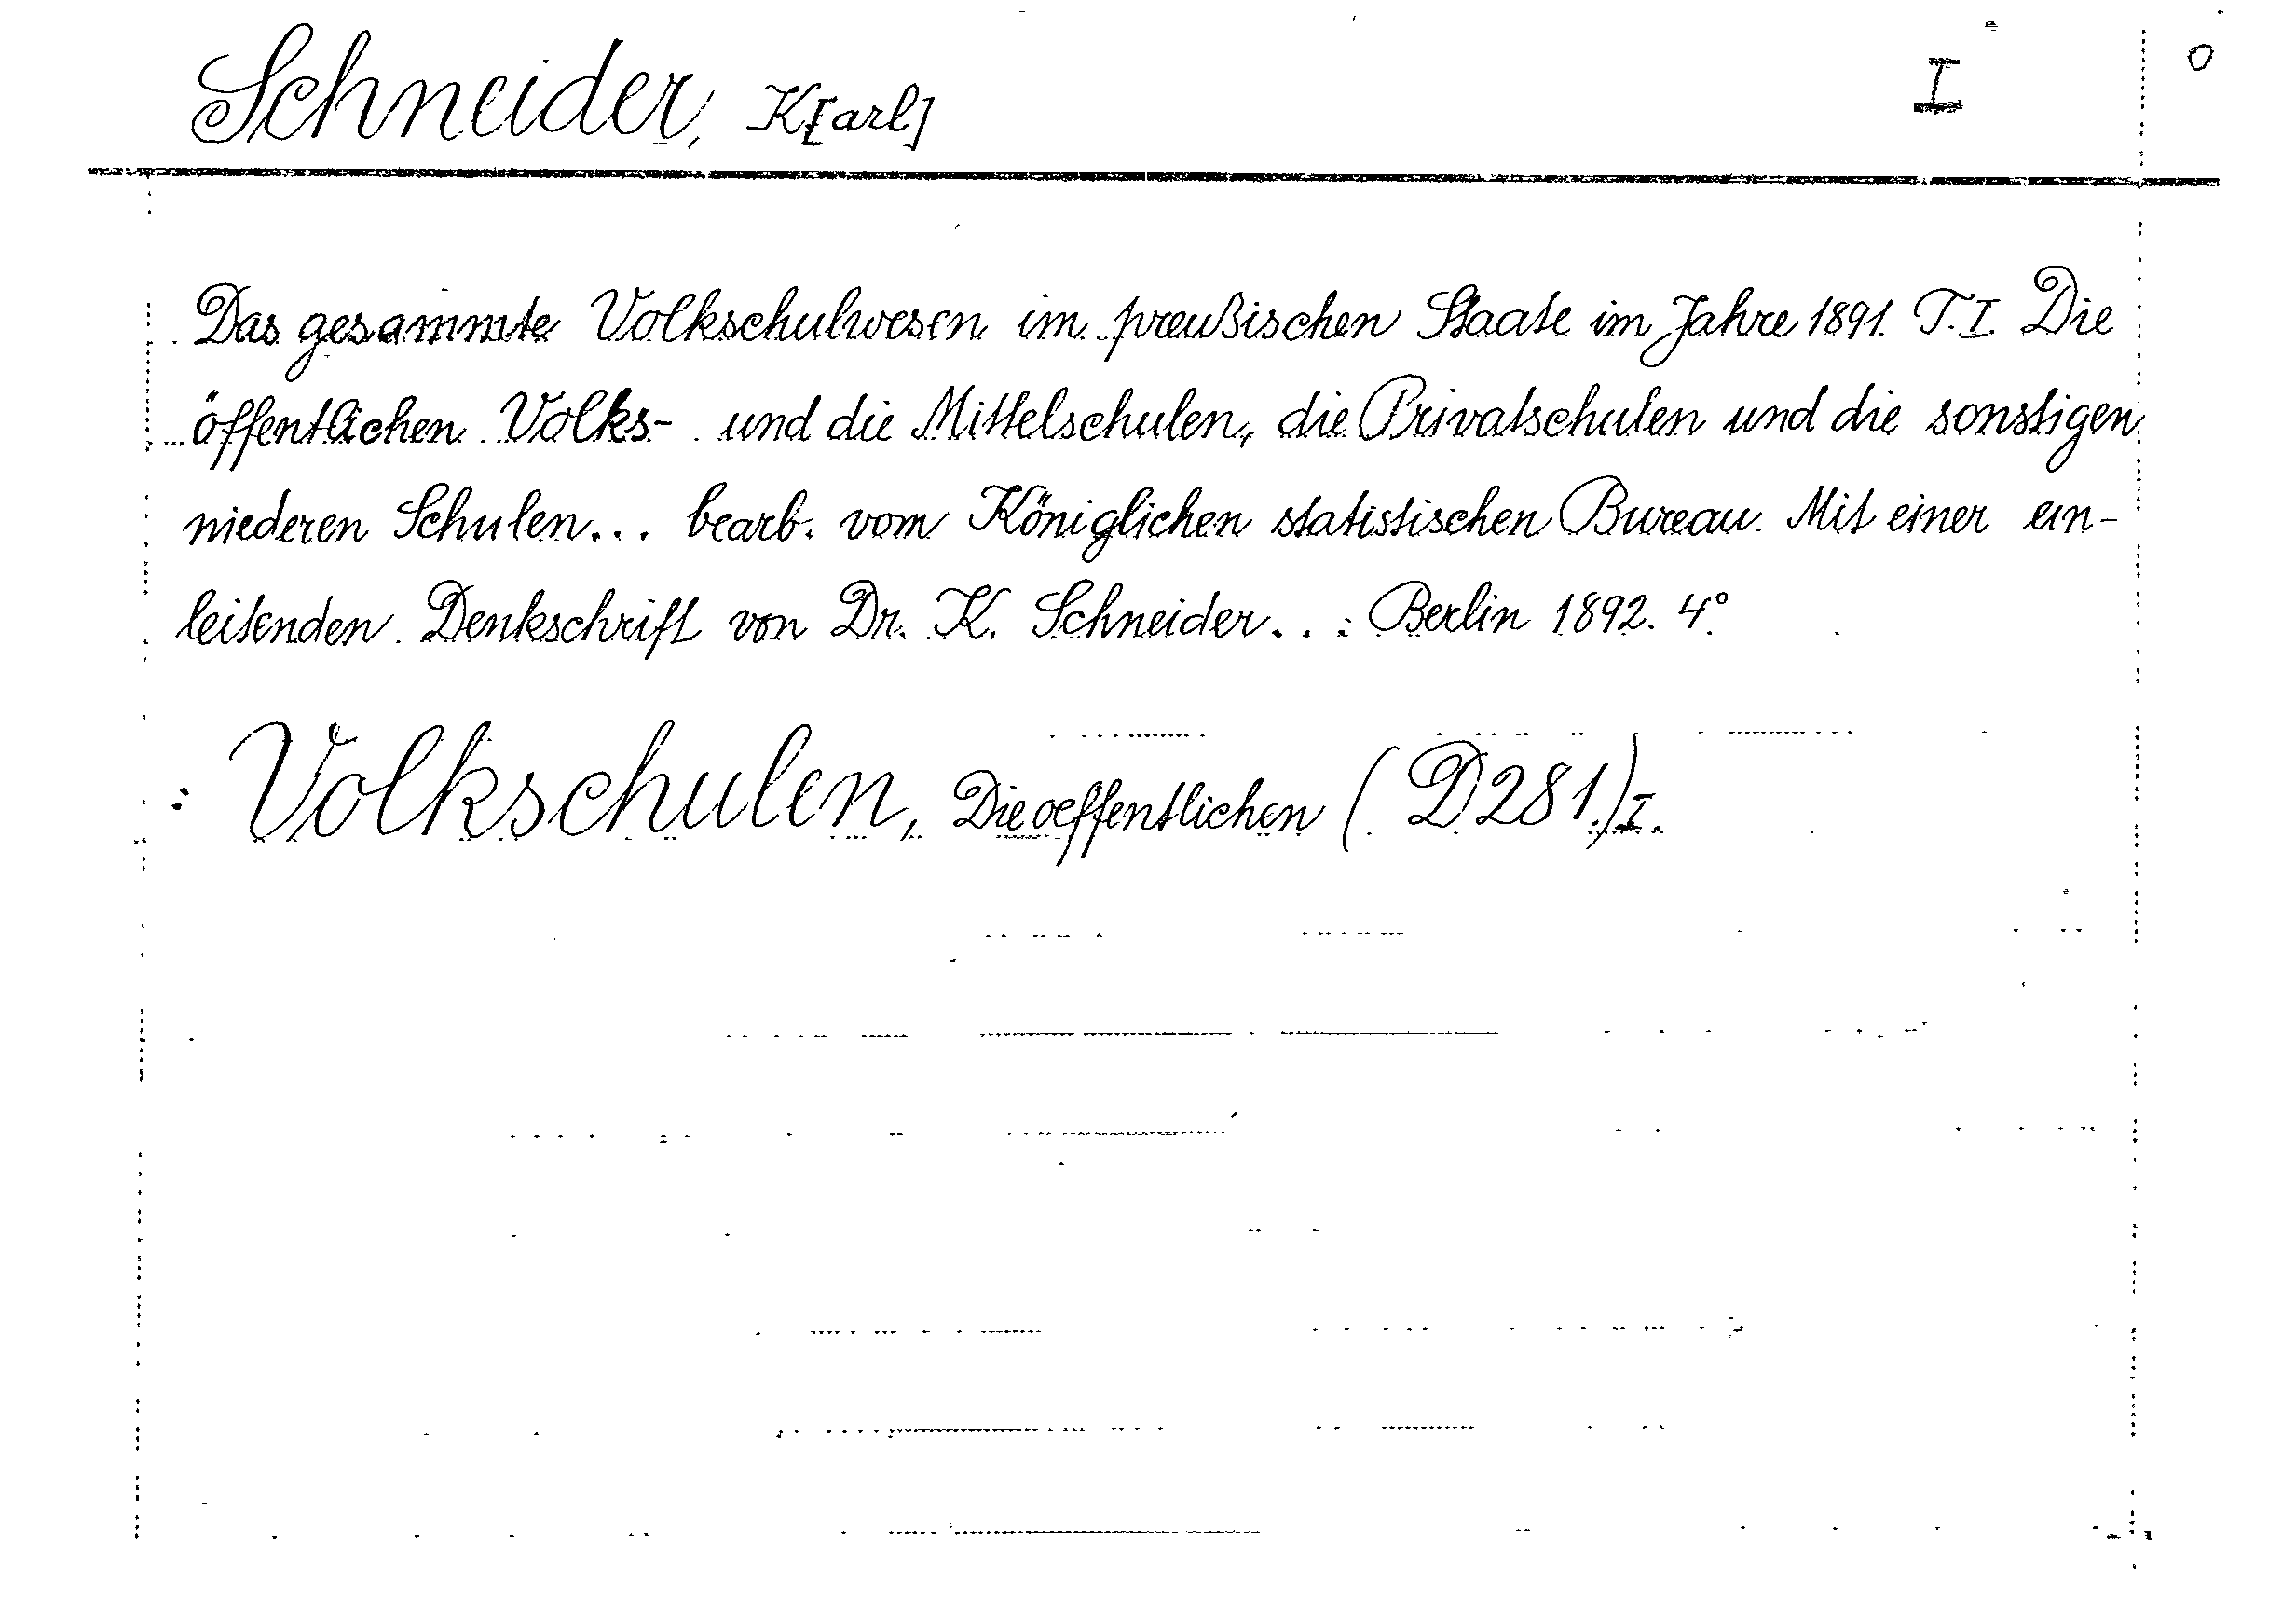 Schneider, K[arl] I
Das gesammte Volkschulwesen im preußischen Staate im Jahre 1891. T.I. Die
öffentlichen Volks- und die Mittelschulen, die Privatschulen und die sonstigen
niederen Schulen... bearb. vom Königlichen statistischen Bureau. Mit einer ein-
leitenden Denkschrift von Dr. K. Schneider... Berlin 1892. 4°
: Volkschulen, Die oeffentlichen (D281.) I.